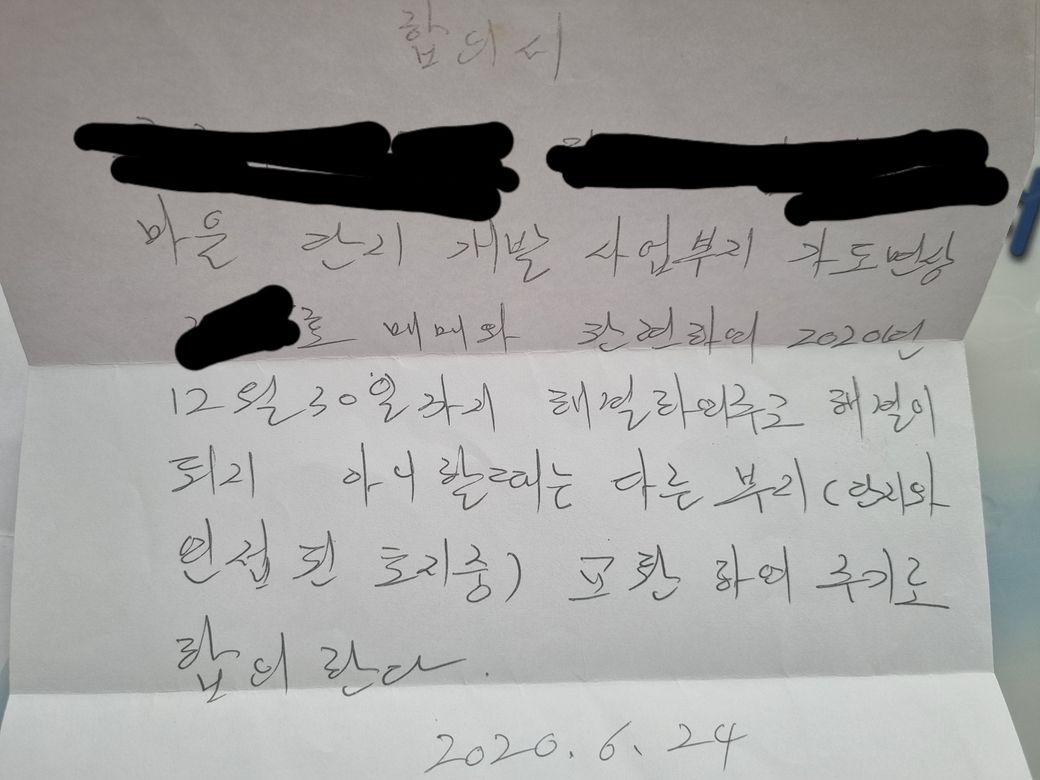 합의서
마을 단지 개발 사업부지 가도면상
로 매매와 관련하여 2020년
12월 30일까지 해결하여주고 해결이
되지 아니할때는 다른 부지(단지와
인접된 토지중) 교환하여 주기로
합의한다.
2020. 6. 24